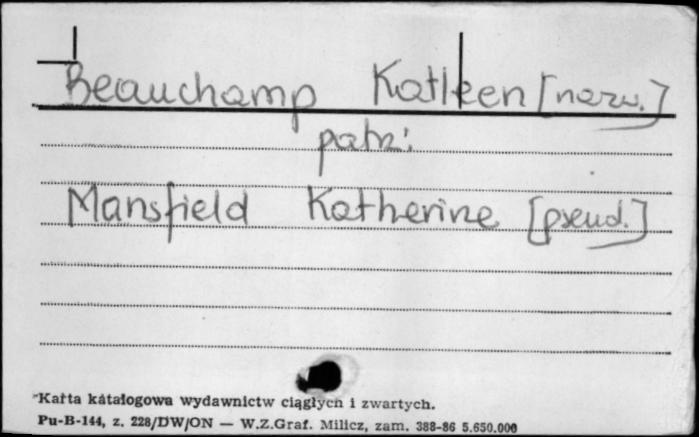 Beauchamp Katleen [nazw.]
patrz:
Mansfield Katherine [pseud.]
Karta katalogowa wydawnictw ciągłych i zwartych.
Pu-B-144, z. 228/DW/ON — W.Z.Graf. Milicz, zam. 388-86 5.650.000